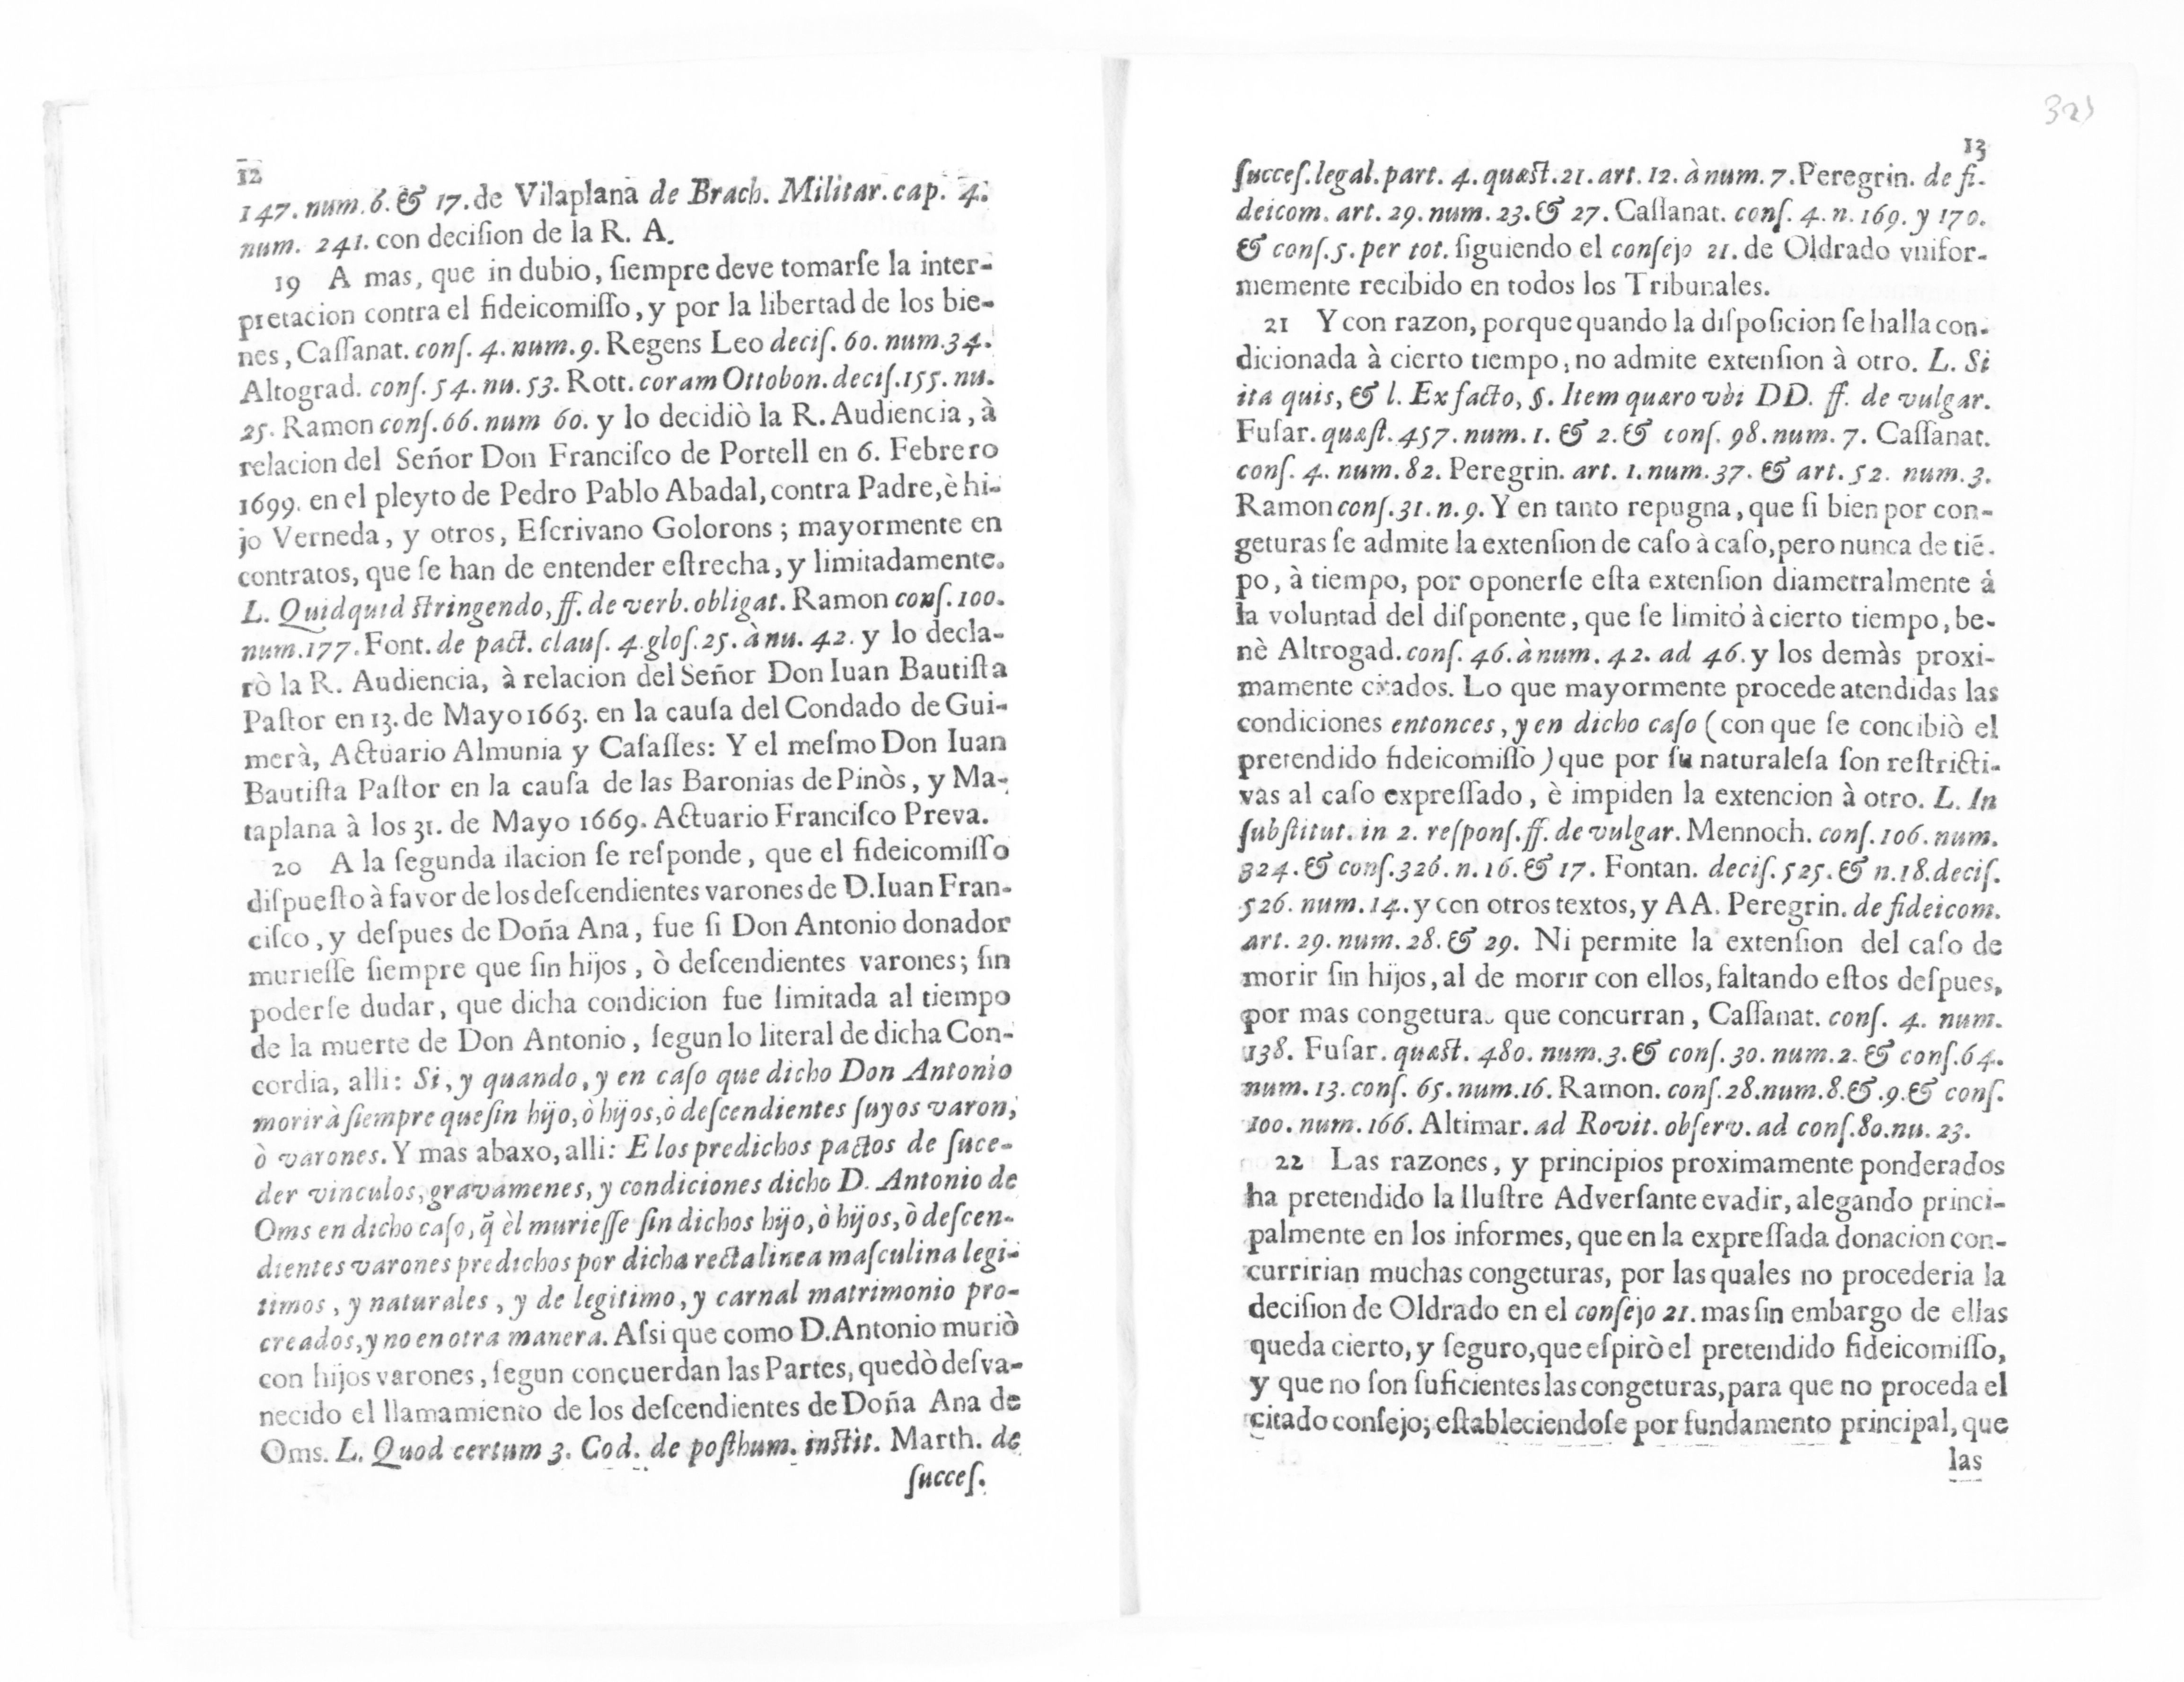 12
147. num. 6. & 17. de Vilaplana de Brach. Militar. cap. 4.
num. 241. con deciſion de la R. A.
19 A mas, que in dubio, ſiempre deve tomarſe la inter-
pretacion contra el fideicomiſſo, y por la libertad de los bie-
nes, Caſſanat. conſ. 4. num. 9. Regens Leo deciſ. 60. num. 34.
Altograd. conſ. 54. nu. 53. Rott. coram Ottobon. deciſ. 155. nu.
25. Ramon conſ. 66. num 60. y lo decidiò la R. Audiencia, à
relacion del Señor Don Franciſco de Portell en 6. Febrero
1699. en el pleyto de Pedro Pablo Abadal, contra Padre, è hi-
jo Verneda, y otros, Eſcrivano Golorons; mayormente en
contratos, que ſe han de entender eſtrecha, y limitadamente.
L. Quidquid ſtringendo, ff. de verb. obligat. Ramon conſ. 100.
num. 177. Font. de pact. clauſ. 4. gloſ. 25. à nu. 42. y lo decla-
rò la R. Audiencia, à relacion del Señor Don Iuan Bautiſta
Paſtor en 13. de Mayo 1663. en la cauſa del Condado de Gui-
merà, Actuario Almunia y Caſaſſes: Y el meſmo Don Iuan
Bautiſta Paſtor en la cauſa de las Baronias de Pinòs, y Ma-
taplana à los 31. de Mayo 1669. Actuario Franciſco Preva.
20 A la ſegunda ilacion ſe reſponde, que el fideicomiſſo
diſpueſto à favor de los deſcendientes varones de D. Iuan Fran-
ciſco, y deſpues de Doña Ana, fue ſi Don Antonio donador
murieſſe ſiempre que ſin hijos, ò deſcendientes varones; ſin
poderſe dudar, que dicha condicion fue limitada al tiempo
de la muerte de Don Antonio, ſegun lo literal de dicha Con-
cordia, alli: Si, y quando, y en caſo que dicho Don Antonio
morirà ſiempre que ſin hijo, ò hijos, ò deſcendientes ſuyos varon,
ò varones. Y mas abaxo, alli: E los predichos pactos de ſuce-
der vinculos, gravamenes, y condiciones dicho D. Antonio de
Oms en dicho caſo, q̃ èl murieſſe ſin dichos hijo, ò hijos, ò deſcen-
dientes varones predichos por dicha recta linea maſculina legi-
timos, y naturales, y de legitimo, y carnal matrimonio pro-
creados, y no en otra manera. Aſsi que como D. Antonio muriò
con hijos varones, ſegun concuerdan las Partes, quedò deſva-
necido el llamamiento de los deſcendientes de Doña Ana de
Oms. L. Quod certum 3. Cod. de poſthum. inſtit. Marth. de
ſucceſ.
321
13
ſucceſ. legal. part. 4. quæſt. 21. art. 12. à num. 7. Peregrin. de fi-
deicom. art. 29. num. 23. & 27. Caſſanat. conſ. 4. n. 169. y 170.
& conſ. 5. per tot. ſiguiendo el conſejo 21. de Oldrado vnifor-
memente recibido en todos los Tribunales.
21 Y con razon, porque quando la diſpoſicion ſe halla con-
dicionada à cierto tiempo, no admite extenſion à otro. L. Si
ita quis, & l. Ex facto, §. Item quæro vbi DD. ff. de vulgar.
Fuſar. quæſt. 457. num. 1. & 2. & conſ. 98. num. 7. Caſſanat.
conſ. 4. num. 82. Peregrin. art. 1. num. 37. & art. 52. num. 3.
Ramon conſ. 31. n. 9. Y en tanto repugna, que ſi bien por con-
geturas ſe admite la extenſion de caſo à caſo, pero nunca de tiẽ-
po, à tiempo, por oponerſe eſta extenſion diametralmente à
la voluntad del diſponente, que ſe limitó à cierto tiempo, be-
nè Altrogad. conſ. 46. à num. 42. ad 46. y los demàs proxi-
mamente citados. Lo que mayormente procede atendidas las
condiciones entonces, y en dicho caſo (con que ſe concibiò el
pretendido fideicomiſſo) que por ſu naturaleſa ſon reſtricti-
vas al caſo expreſſado, è impiden la extencion à otro. L. In
ſubſtitut. in 2. reſponſ. ff. de vulgar. Mennoch. conſ. 106. num.
324. & conſ. 326. n. 16. & 17. Fontan. deciſ. 525. & n. 18. deciſ.
526. num. 14. y con otros textos, y AA. Peregrin. de fideicom.
art. 29. num. 28. & 29. Ni permite la extenſion del caſo de
morir ſin hijos, al de morir con ellos, faltando eſtos deſpues,
por mas congetura. que concurran, Caſſanat. conſ. 4. num.
138. Fuſar. quæſt. 480. num. 3. & conſ. 30. num. 2. & conſ. 64.
num. 13. conſ. 65. num. 16. Ramon. conſ. 28. num. 8. & .9. & conſ.
100. num. 166. Altimar. ad Rovit. obſerv. ad conſ. 80. nu. 23.
22 Las razones, y principios proximamente ponderados
ha pretendido la Iluſtre Adverſante evadir, alegando princi-
palmente en los informes, que en la expreſſada donacion con-
curririan muchas congeturas, por las quales no procederia la
deciſion de Oldrado en el conſejo 21. mas ſin embargo de ellas
queda cierto, y ſeguro, que eſpirò el pretendido fideicomiſſo,
y que no ſon ſuficientes las congeturas, para que no proceda el
citado conſejo; eſtableciendoſe por fundamento principal, que
las